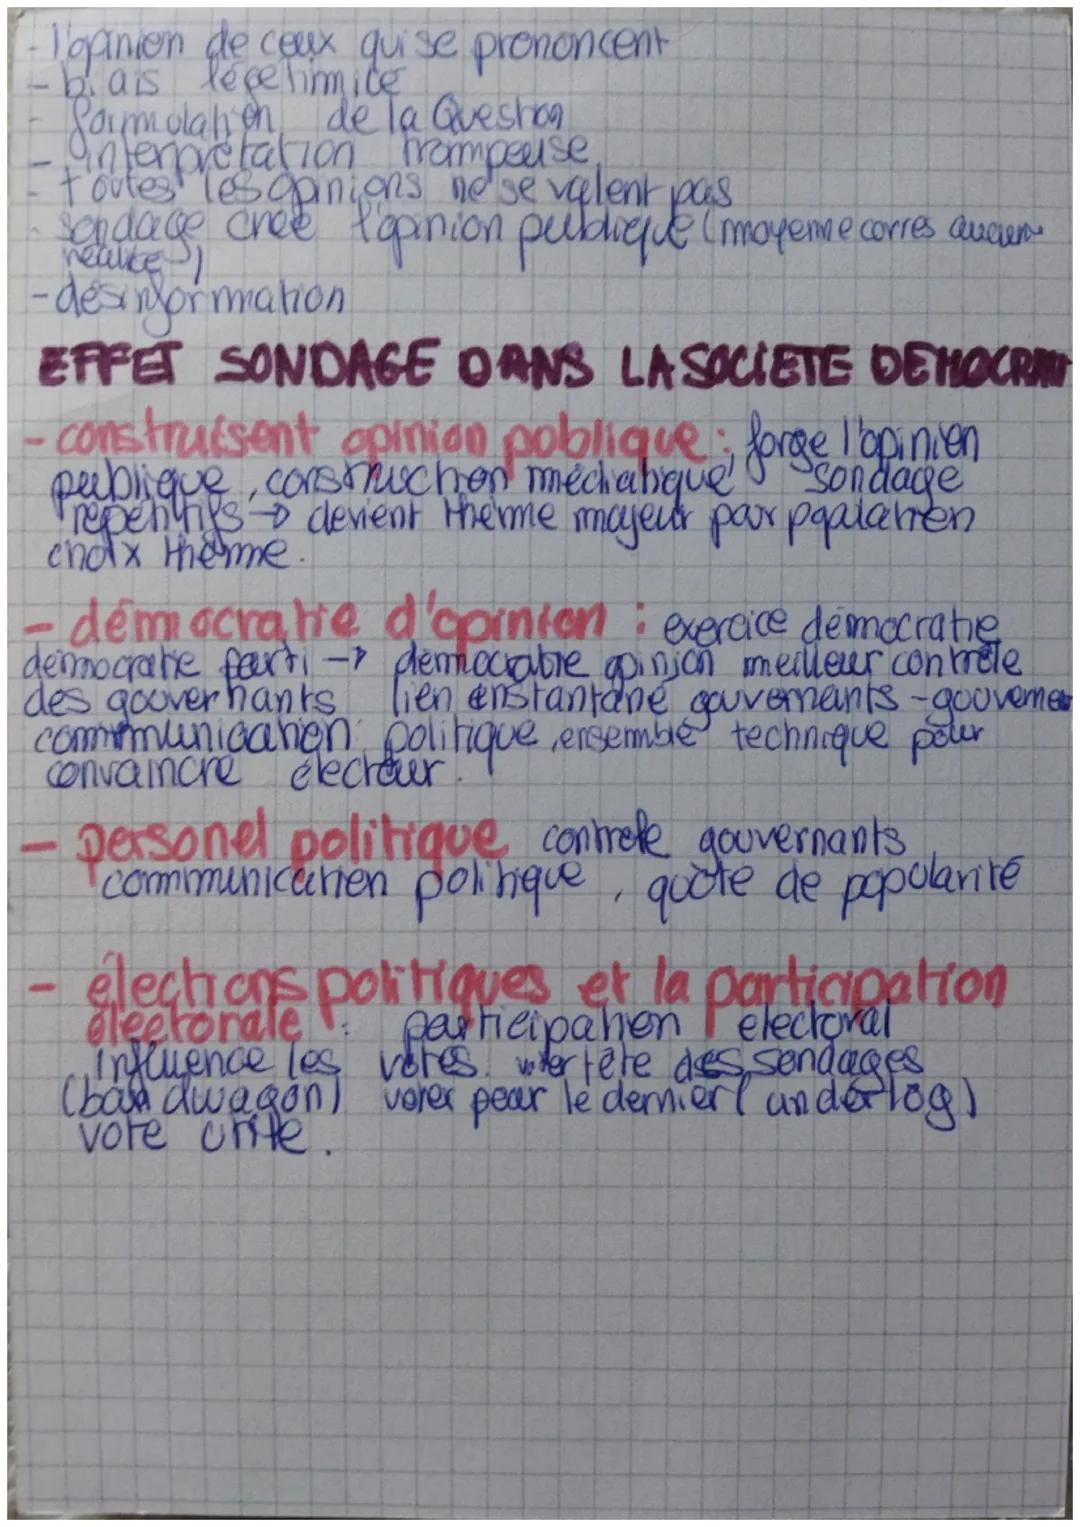 - l'opinion de ceux qui se prononcent
- biais légetimmité
- formulation de la Question
- interprétation trompeuse
- toutes les opinions ne se valent pas
- sondage crée l'opinion publique (moyenne corres aucune
réalité)
- désinformation
EFFET SONDAGE DANS LA SOCIETE DEMOCRAT
- construisent opinion poblique : forge l'opinion
publique, construction médiatique sondage
répétitifs → devient thème majeur par popalation
choix thème.
- démocratie d'opinion : exercice démocratie
démocratie parti → démocratie opinion meilleur contrôle
des gouvernants lien enstantané gouvernants - gouverner
commmunication politique, ensemble technique pour
convaincre électeur.
- personel politique contrôle gouvernants
commmunication politique, quôte de popularité
- élections politiques et la participation
électorale : participation électoral
influence les votes. voter tête des sondages
(bandwagon) voter pour le dernier (underlog)
vote utile.